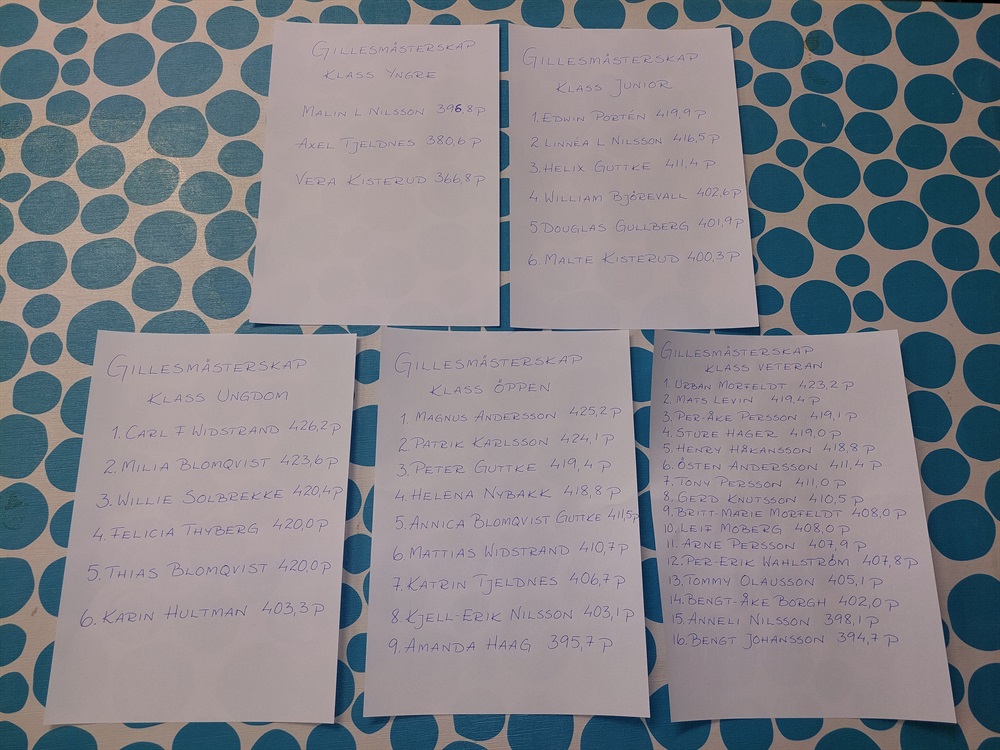 GILLESMÄSTERSKAP
KLASS YNGRE
MALIN L NILSSON 396,8 P
AXEL TJELDNES 380,6 P
VERA KISTERUD 366,8 P
GILLESMÄSTERSKAP
KLASS JUNIOR
1. EDWIN PORTÉN 419,9 P
2. LINNÉA L NILSSON 416,5 P
3. HELIX GUTTKE 411,4 P
4. WILLIAM BJÖREVALL 402,6 P
5. DOUGLAS GULLBERG 401,9 P
6. MALTE KISTERUD 400,3 P
GILLESMÄSTERSKAP
KLASS UNGDOM
1. CARL F WIDSTRAND 426,2 P
2. MILIA BLOMQVIST 423,6 P
3. WILLIE SOLBREKKE 420,4 P
4. FELICIA THYBERG 420,0 P
5. THIAS BLOMQVIST 420,0 P
6. KARIN HULTMAN 403,3 P
GILLESMÄSTERSKAP
KLASS ÖPPEN
1. MAGNUS ANDERSSON 425,2 P
2. PATRIK KARLSSON 424,1 P
3. PETER GUTTKE 419,4 P
4. HELENA NYBAKK 418,8 P
5. ANNICA BLOMQVIST GUTTKE 411,5 P
6. MATTIAS WIDSTRAND 410,7 P
7. KATRIN TJELDNES 406,7 P
8. KJELL-ERIK NILSSON 403,1 P
9. AMANDA HAAG 395,7 P
GILLESMÄSTERSKAP
KLASS VETERAN
1. URBAN MORFELDT 423,2 P
2. MATS LEVIN 419,4 P
3. PER-ÅKE PERSSON 419,1 P
4. STURE HAGER 419,0 P
5. HENRY HÅKANSSON 418,8 P
6. ÖSTEN ANDERSSON 411,4 P
7. TONY PERSSON 411,0 P
8. GERD KNUTSSON 410,5 P
9. BRITT-MARIE MORFELDT 408,0 P
10. LEIF MOBERG 408,0 P
11. ARNE PERSSON 407,9 P
12. PER-ERIK WAHLSTRÖM 407,8 P
13. TOMMY OLAUSSON 405,1 P
14. BENGT-ÅKE BORGH 402,0 P
15. ANNELI NILSSON 398,1 P
16. BENGT JOHANSSON 394,7 P